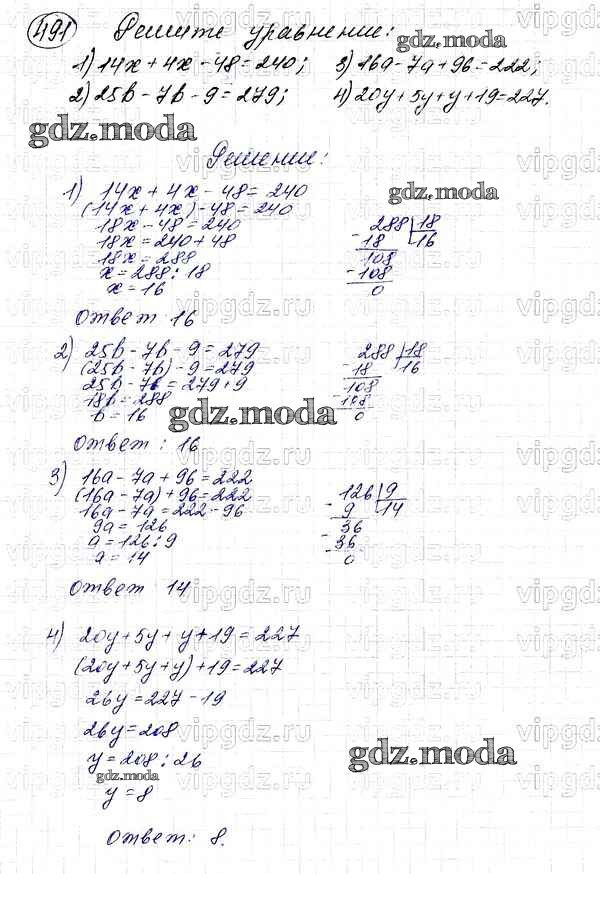 491 Решите уравнение:
1) 14x + 4x - 48 = 240; 3) 16a - 7a + 96 = 222;
2) 25b - 7b - 9 = 279; 4) 20y + 5y + y + 19 = 227.
Решение:
1) 14x + 4x - 48 = 240
(14x + 4x) - 48 = 240
18x - 48 = 240
18x = 240 + 48
18x = 288
x = 288 : 18
x = 16
288 18
- 18 16
108
- 108
0
Ответ 16
2) 25b - 7b - 9 = 279
(25b - 7b) - 9 = 279
25b - 7b = 279 + 9
18b = 288
b = 16
288 18
- 18 16
108
- 108
0
Ответ : 16
3) 16a - 7a + 96 = 222
(16a - 7a) + 96 = 222
16a - 7a = 222 - 96
9a = 126
a = 126 : 9
a = 14
126 9
- 9 14
36
- 36
0
Ответ 14
4) 20y + 5y + y + 19 = 227
(20y + 5y + y) + 19 = 227
26y = 227 - 19
26y = 208
y = 208 : 26
y = 8
Ответ : 8.
gdz.moda
vipgdz.ru